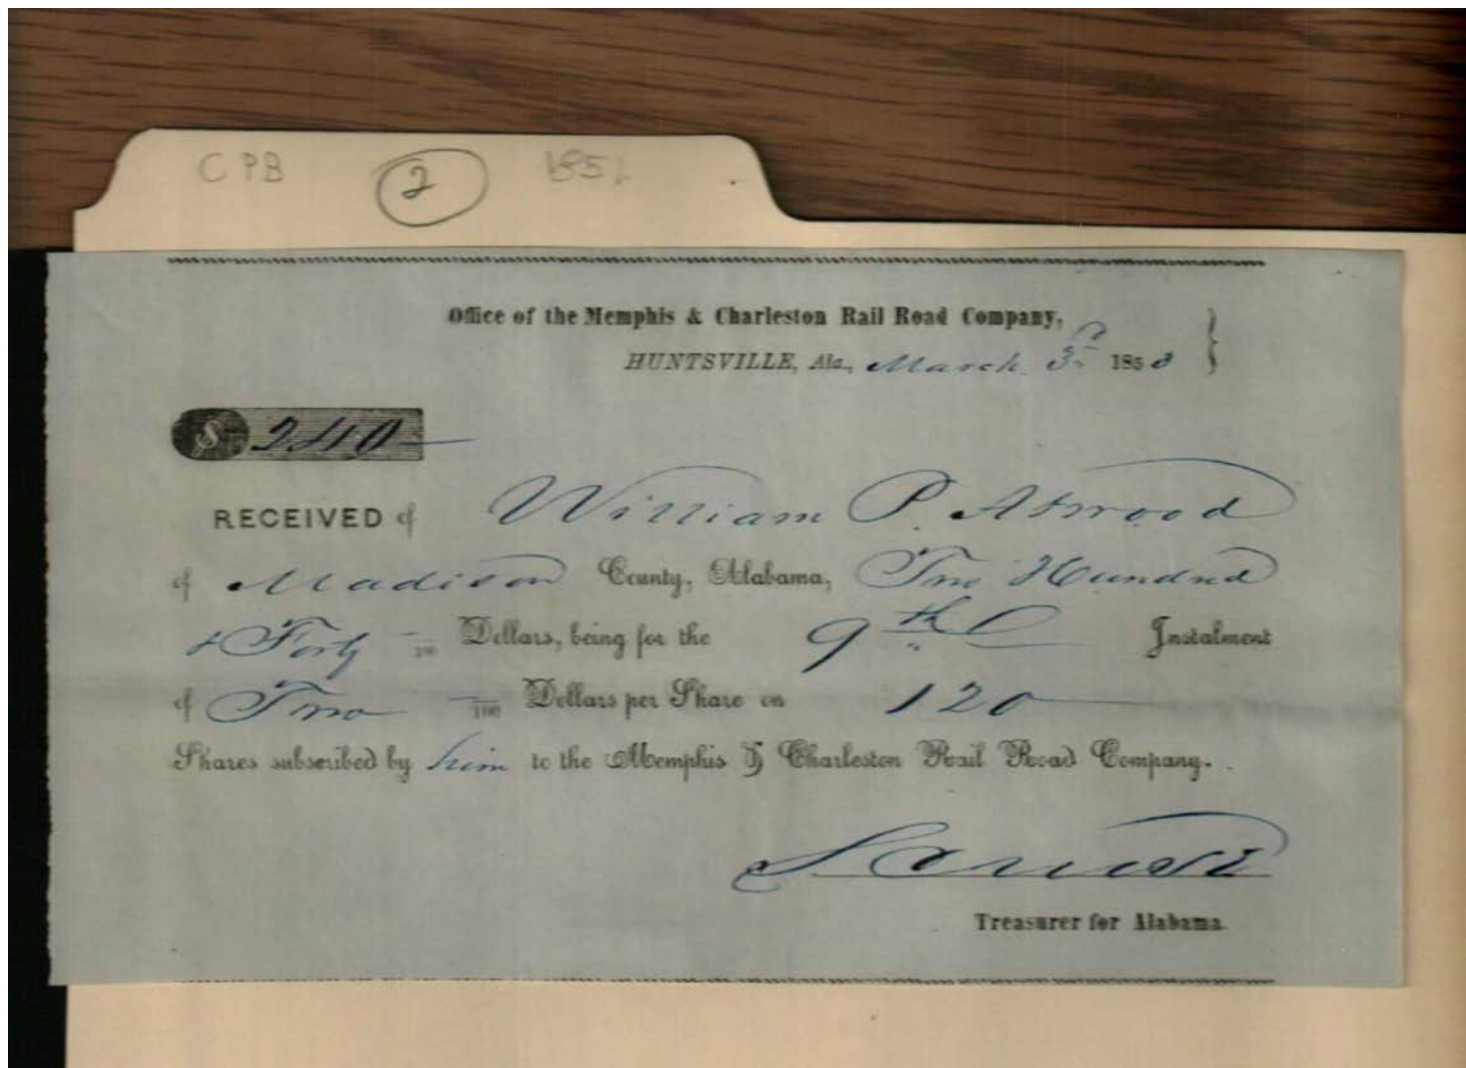 CPB 2 185
Office of the Memphis & Charleston Rail Road Company,
HUNTSVILLE, Ala., March 3d 1853
$ 240
RECEIVED of William P. Atwood
of Madison County, Alabama, Two Hundred
& Forty /100 Dollars, being for the 9th Instalment
of Two /100 Dollars per Share on 120
Shares subscribed by him to the Memphis & Charleston Rail Road Company.
Treasurer for Alabama.